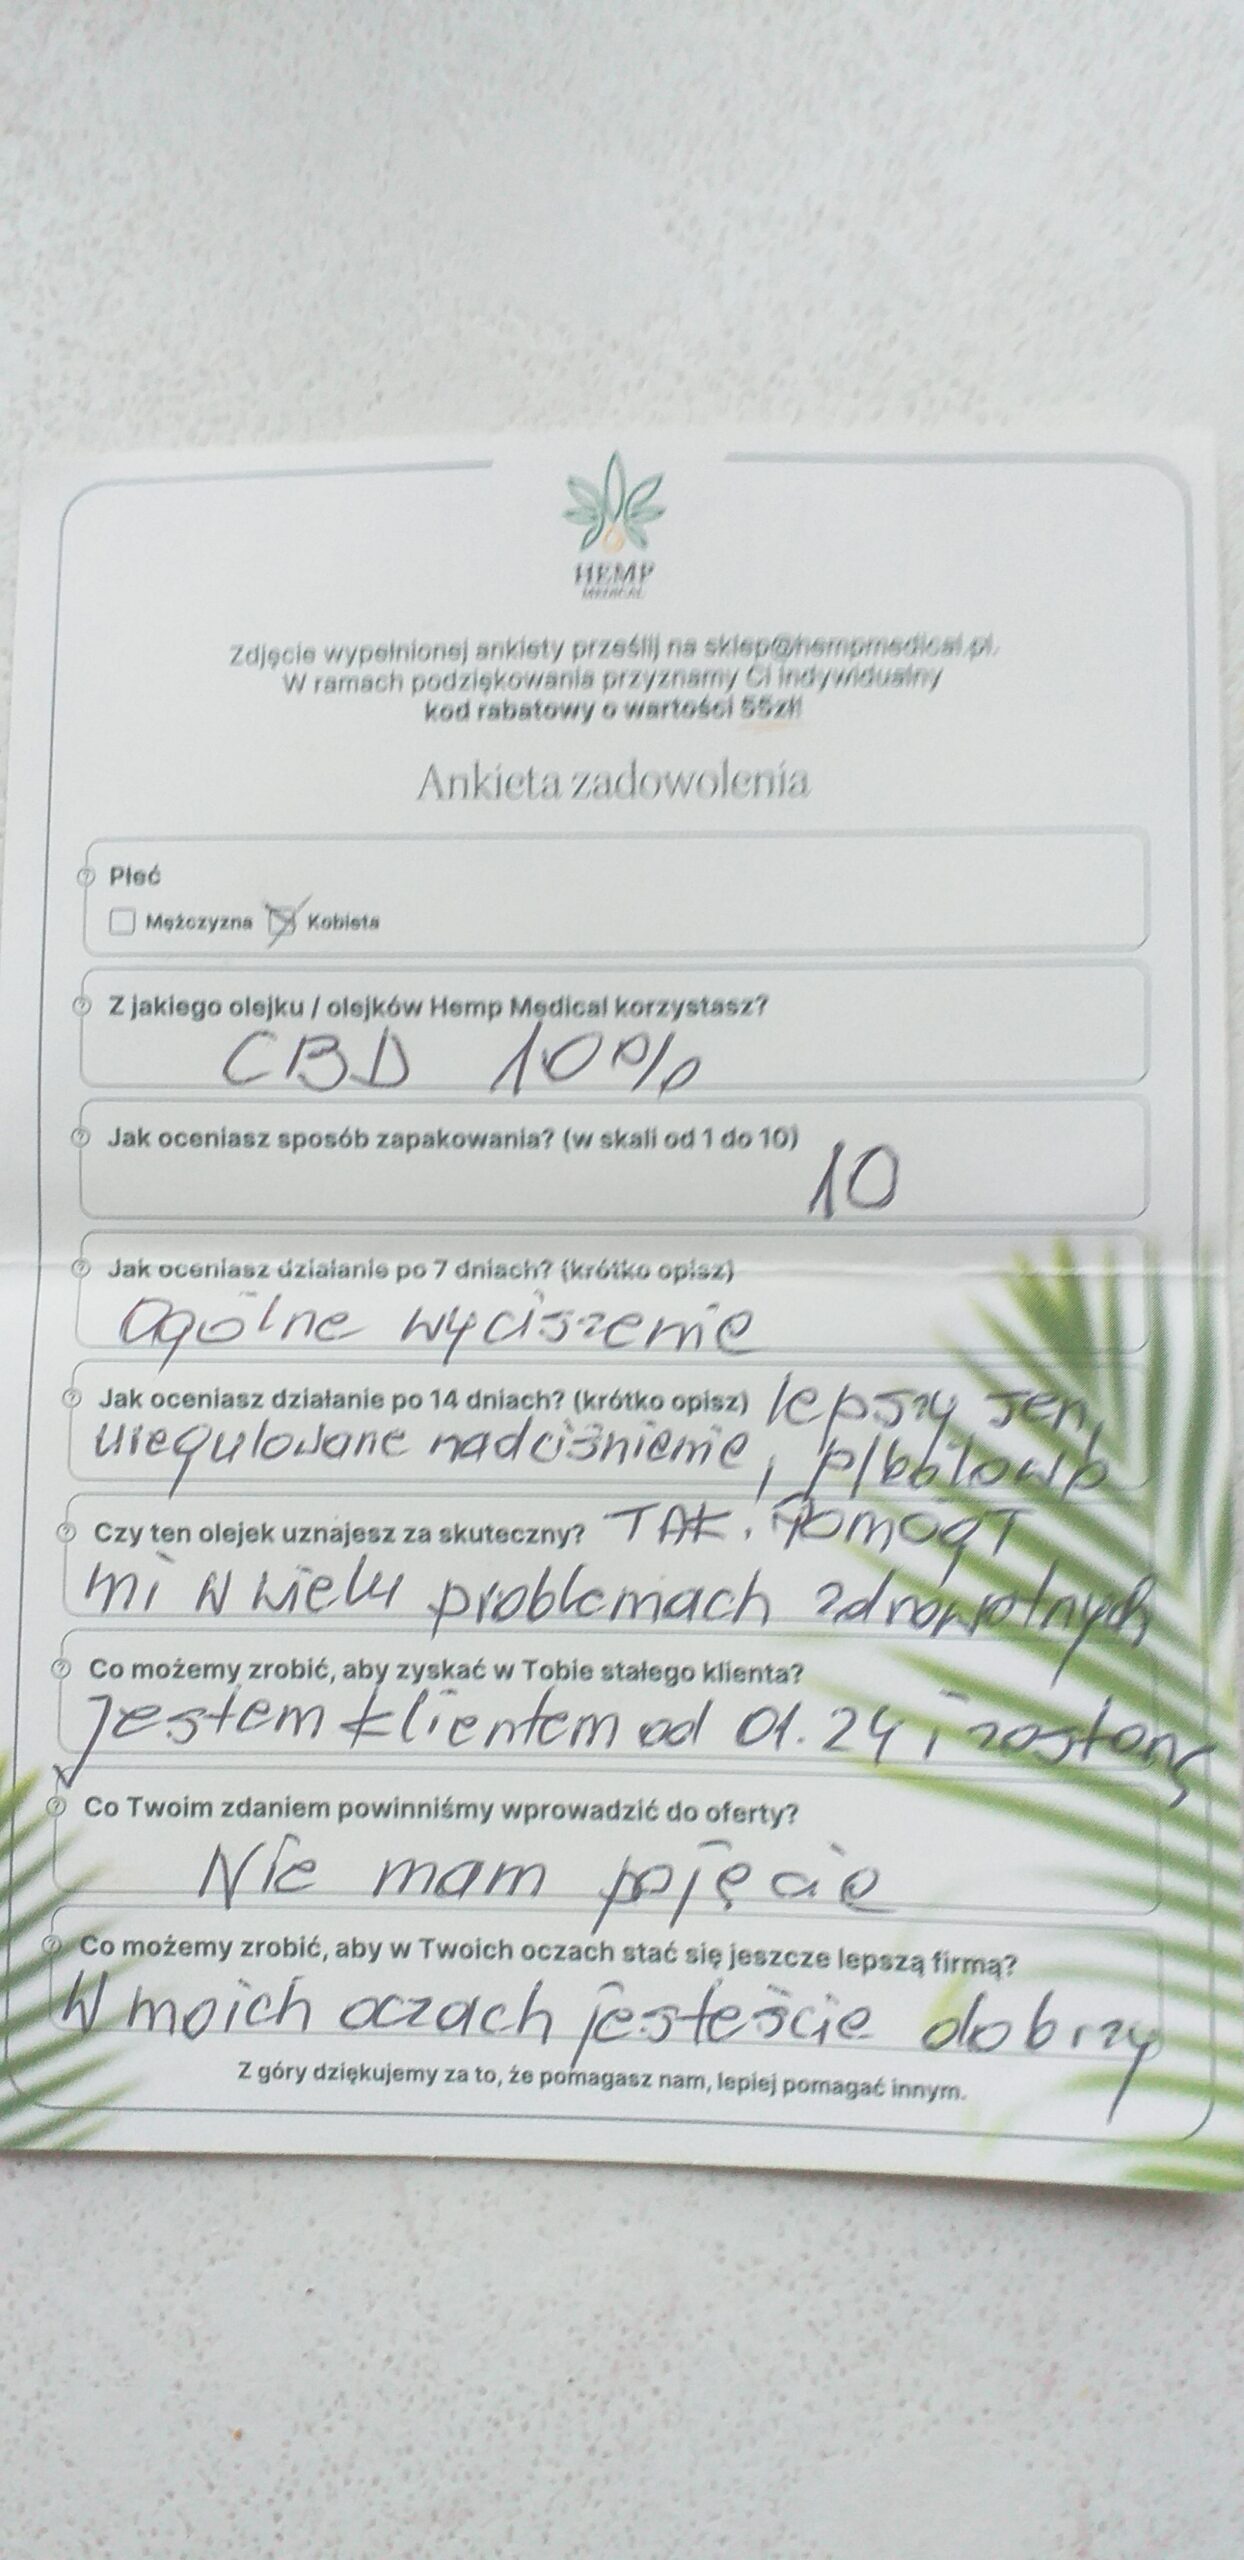 HEMP
MEDICAL
Zdjęcie wypełnionej ankiety prześlij na sklep@hempmedical.pl.
W ramach podziękowania przyznamy Ci indywidualny
kod rabatowy o wartości 55zł!
Ankieta zadowolenia
Płeć
Mężczyzna Kobieta
Z jakiego olejku / olejków Hemp Medical korzystasz?
CBD 10%
Jak oceniasz sposób zapakowania? (w skali od 1 do 10)
10
Jak oceniasz działanie po 7 dniach? (krótko opisz)
Ogólne wyciszenie
Jak oceniasz działanie po 14 dniach? (krótko opisz) lepszy sen,
uregulowane nadciśnienie,
Czy ten olejek uznajesz za skuteczny? TAK. Pomógł
mi w wielu problemach zdrowotnych
Co możemy zrobić, aby zyskać w Tobie stałego klienta?
Jestem klientem od 01.24 i zostanę
Co Twoim zdaniem powinniśmy wprowadzić do oferty?
Nie mam pojęcie
Co możemy zrobić, aby w Twoich oczach stać się jeszcze lepszą firmą?
W moich oczach jesteście dobrzy
Z góry dziękujemy za to, że pomagasz nam, lepiej pomagać innym.